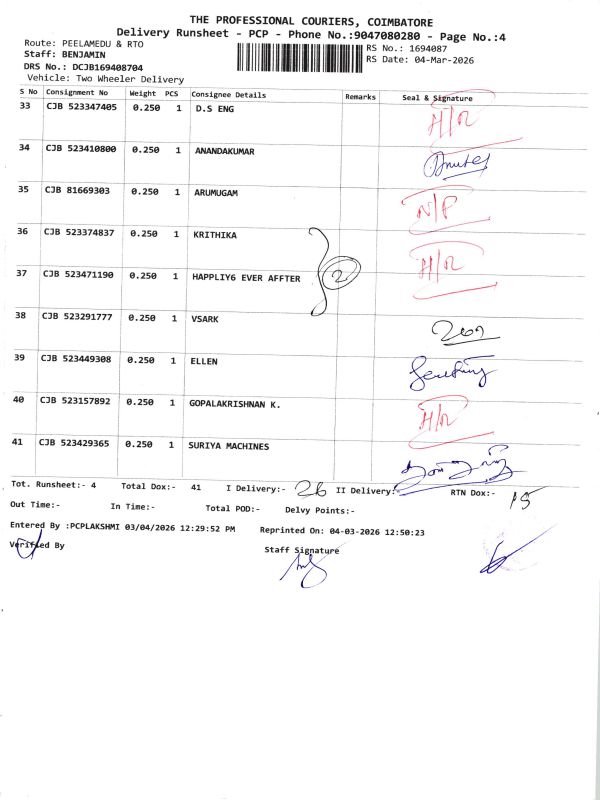 THE PROFESSIONAL COURIERS, COIMBATORE
Delivery Runsheet - PCP - Phone No.:9047080280 - Page No.:4
Route: PEELAMEDU & RTO
RS No.: 1694087
Staff: BENJAMIN
RS Date: 04-Mar-2026
DRS No.: DCJB169408704
Vehicle: Two Wheeler Delivery
S No Consignment No Weight PCS Consignee Details Remarks Seal & Signature
33 CJB 523347405 0.250 1 D.S ENG H/R
34 CJB 523410800 0.250 1 ANANDAKUMAR
35 CJB 81669303 0.250 1 ARUMUGAM N/P
36 CJB 523374837 0.250 1 KRITHIKA
37 CJB 523471190 0.250 1 HAPPLIY6 EVER AFFTER 2 H/R
38 CJB 523291777 0.250 1 VSARK
39 CJB 523449308 0.250 1 ELLEN
40 CJB 523157892 0.250 1 GOPALAKRISHNAN K. H/R
41 CJB 523429365 0.250 1 SURIYA MACHINES
Tot. Runsheet:- 4 Total Dox:- 41 I Delivery:- 26 II Delivery:- RTN Dox:- 15
Out Time:- In Time:- Total POD:- Delvy Points:-
Entered By :PCPLAKSHMI 03/04/2026 12:29:52 PM Reprinted On: 04-03-2026 12:50:23
Verified By Staff Signature